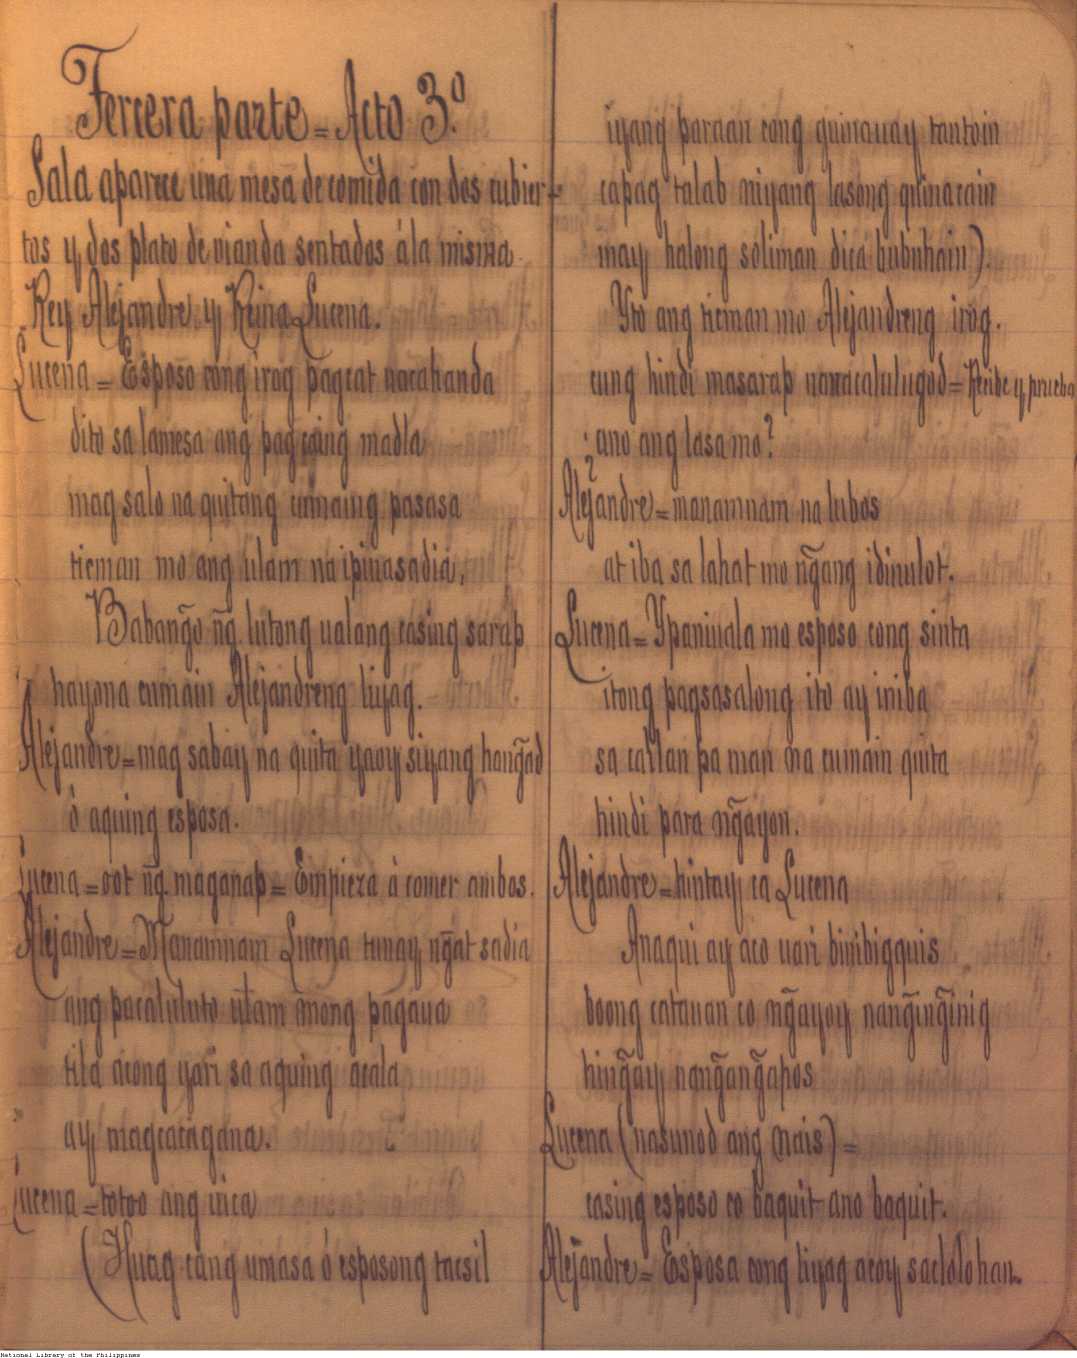 Tercera parte = Acto 3.º
Sala aparece una mesa de comida con dos cubier-
tos y dos plato de vianda sentados ála misma
Rey Alejandre y Reina Lucena.
Lucena = Esposo cong irog pagcat nacahanda
dito sa lamesa ang pagcaing madla
mag salo na quitang cumaing pasasa
ticman mo ang ulam na ipinasadia,
Baban͠go n͠g lutong ualang casing sarap
hayona cumain Alejandreng liyag.
Alejandre = mag sabay na quita yaoy siyang han͠gad
ò aquing esposa.
Lucena = oot n͠g maganap = Empieza á comer ambos.
Alejandre = Manamnam Lucena tunay n͠gat sadia
ang pacaluluto ulam mong pagaua
tila acong yari sa aquing acala
ay magcacagana.
Lucena = totoo ang uica
(Huag cang umasa ó esposong tacsil
iyang paraan cong guinauay tantoin
capag talab niyang lasong quinacain
may halong soliman dica bubuhain).
Yto ang ticman mo Alejandreng irog.
cung hindi masarap nacacalulugod = Recibe y prueba
¿ano ang lasa mo?
Alejandre = manamnam na lubos
at iba sa lahat mo n͠gang idinulot.
Lucena = Ypaniuala mo esposo cong sinta
itong pagsasalong ito ay iniba
sa cailan pa man na cumain quita
hindi para n͠gayon.
Alejandre = hintay ca Lucena
Anaqui ay aco uari binibigquis
boong catauan co n͠gayoy nan͠gin͠ginig
hin͠gay nan͠gan͠gapos
Lucena (nasunod ang nais) =
casing esposo co baquit ano baquit.
Alejandre = Esposa cong liyag acoy saclolohan.
National Library of the Philippines